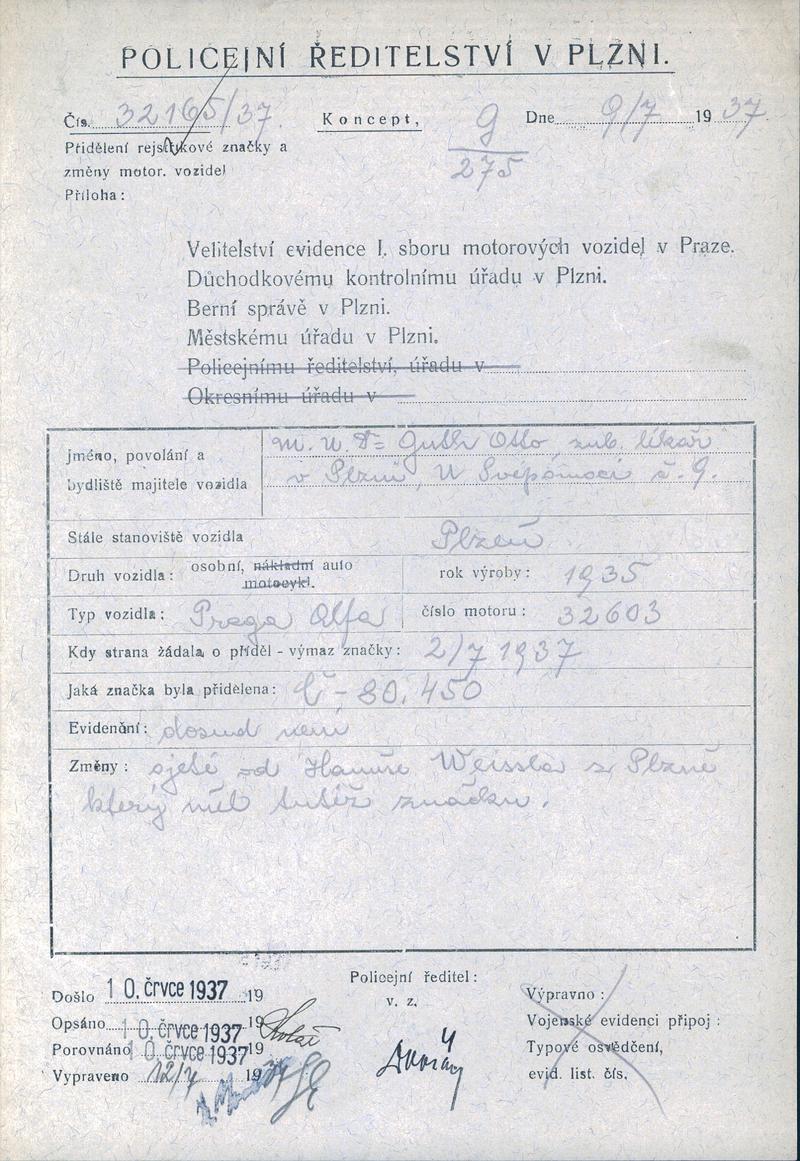 POLICEJNÍ ŘEDITELSTVÍ V PLZNI.
Čís. 32165/37. Koncept, 9/275 Dne 9/7 1937.
Přidělení rejstříkové značky a
změny motor. vozidel
Příloha:
Velitelství evidence I. sboru motorových vozidel v Praze.
Důchodkovému kontrolnímu úřadu v Plzni.
Berní správě v Plzni.
Městskému úřadu v Plzni.
Policejnímu ředitelství, úřadu v
Okresnímu úřadu v
jméno, povolání a bydliště majitele vozidla
M. U. Dr Guth Otto, zub. lékař
v Plzni, U Svépomoci č. 9.
Stále stanoviště vozidla Plzeň
Druh vozidla: osobní, nákladní auto motocykl. rok výroby: 1935
Typ vozidla: Praga Alfa číslo motoru: 32603
Kdy strana žádala o příděl - výmaz značky: 2/7 1937
Jaká značka byla přidělena: Č-80.450
Evidenční: dosud není
Změny: ojeté od Hanuše Weissla z Plzně
který měl tutéž značku.
Došlo 10. črvce 1937 19
Opsáno 10. črvce 1937 19
Porovnáno 10. črvce 1937 19
Vypraveno 12/7 19
Policejní ředitel:
v. z.
Dvořák
Výpravno:
Vojenské evidenci připoj:
Typové osvědčení,
evid. list. čís.